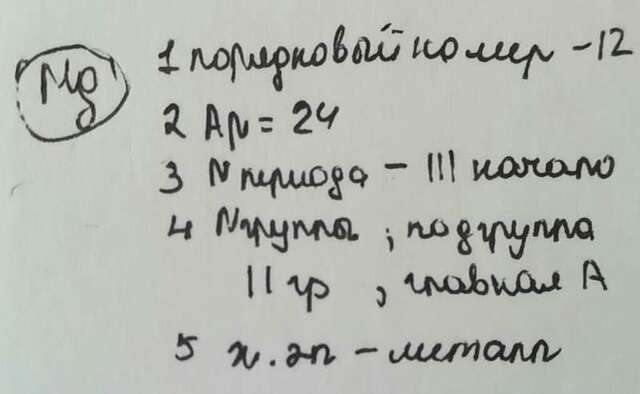 Mg
1 порядковый номер - 12
2 Ar = 24
3 N периода - III начало
4 N группы ; подгруппа
II гр , главная А
5 х. эл - металл